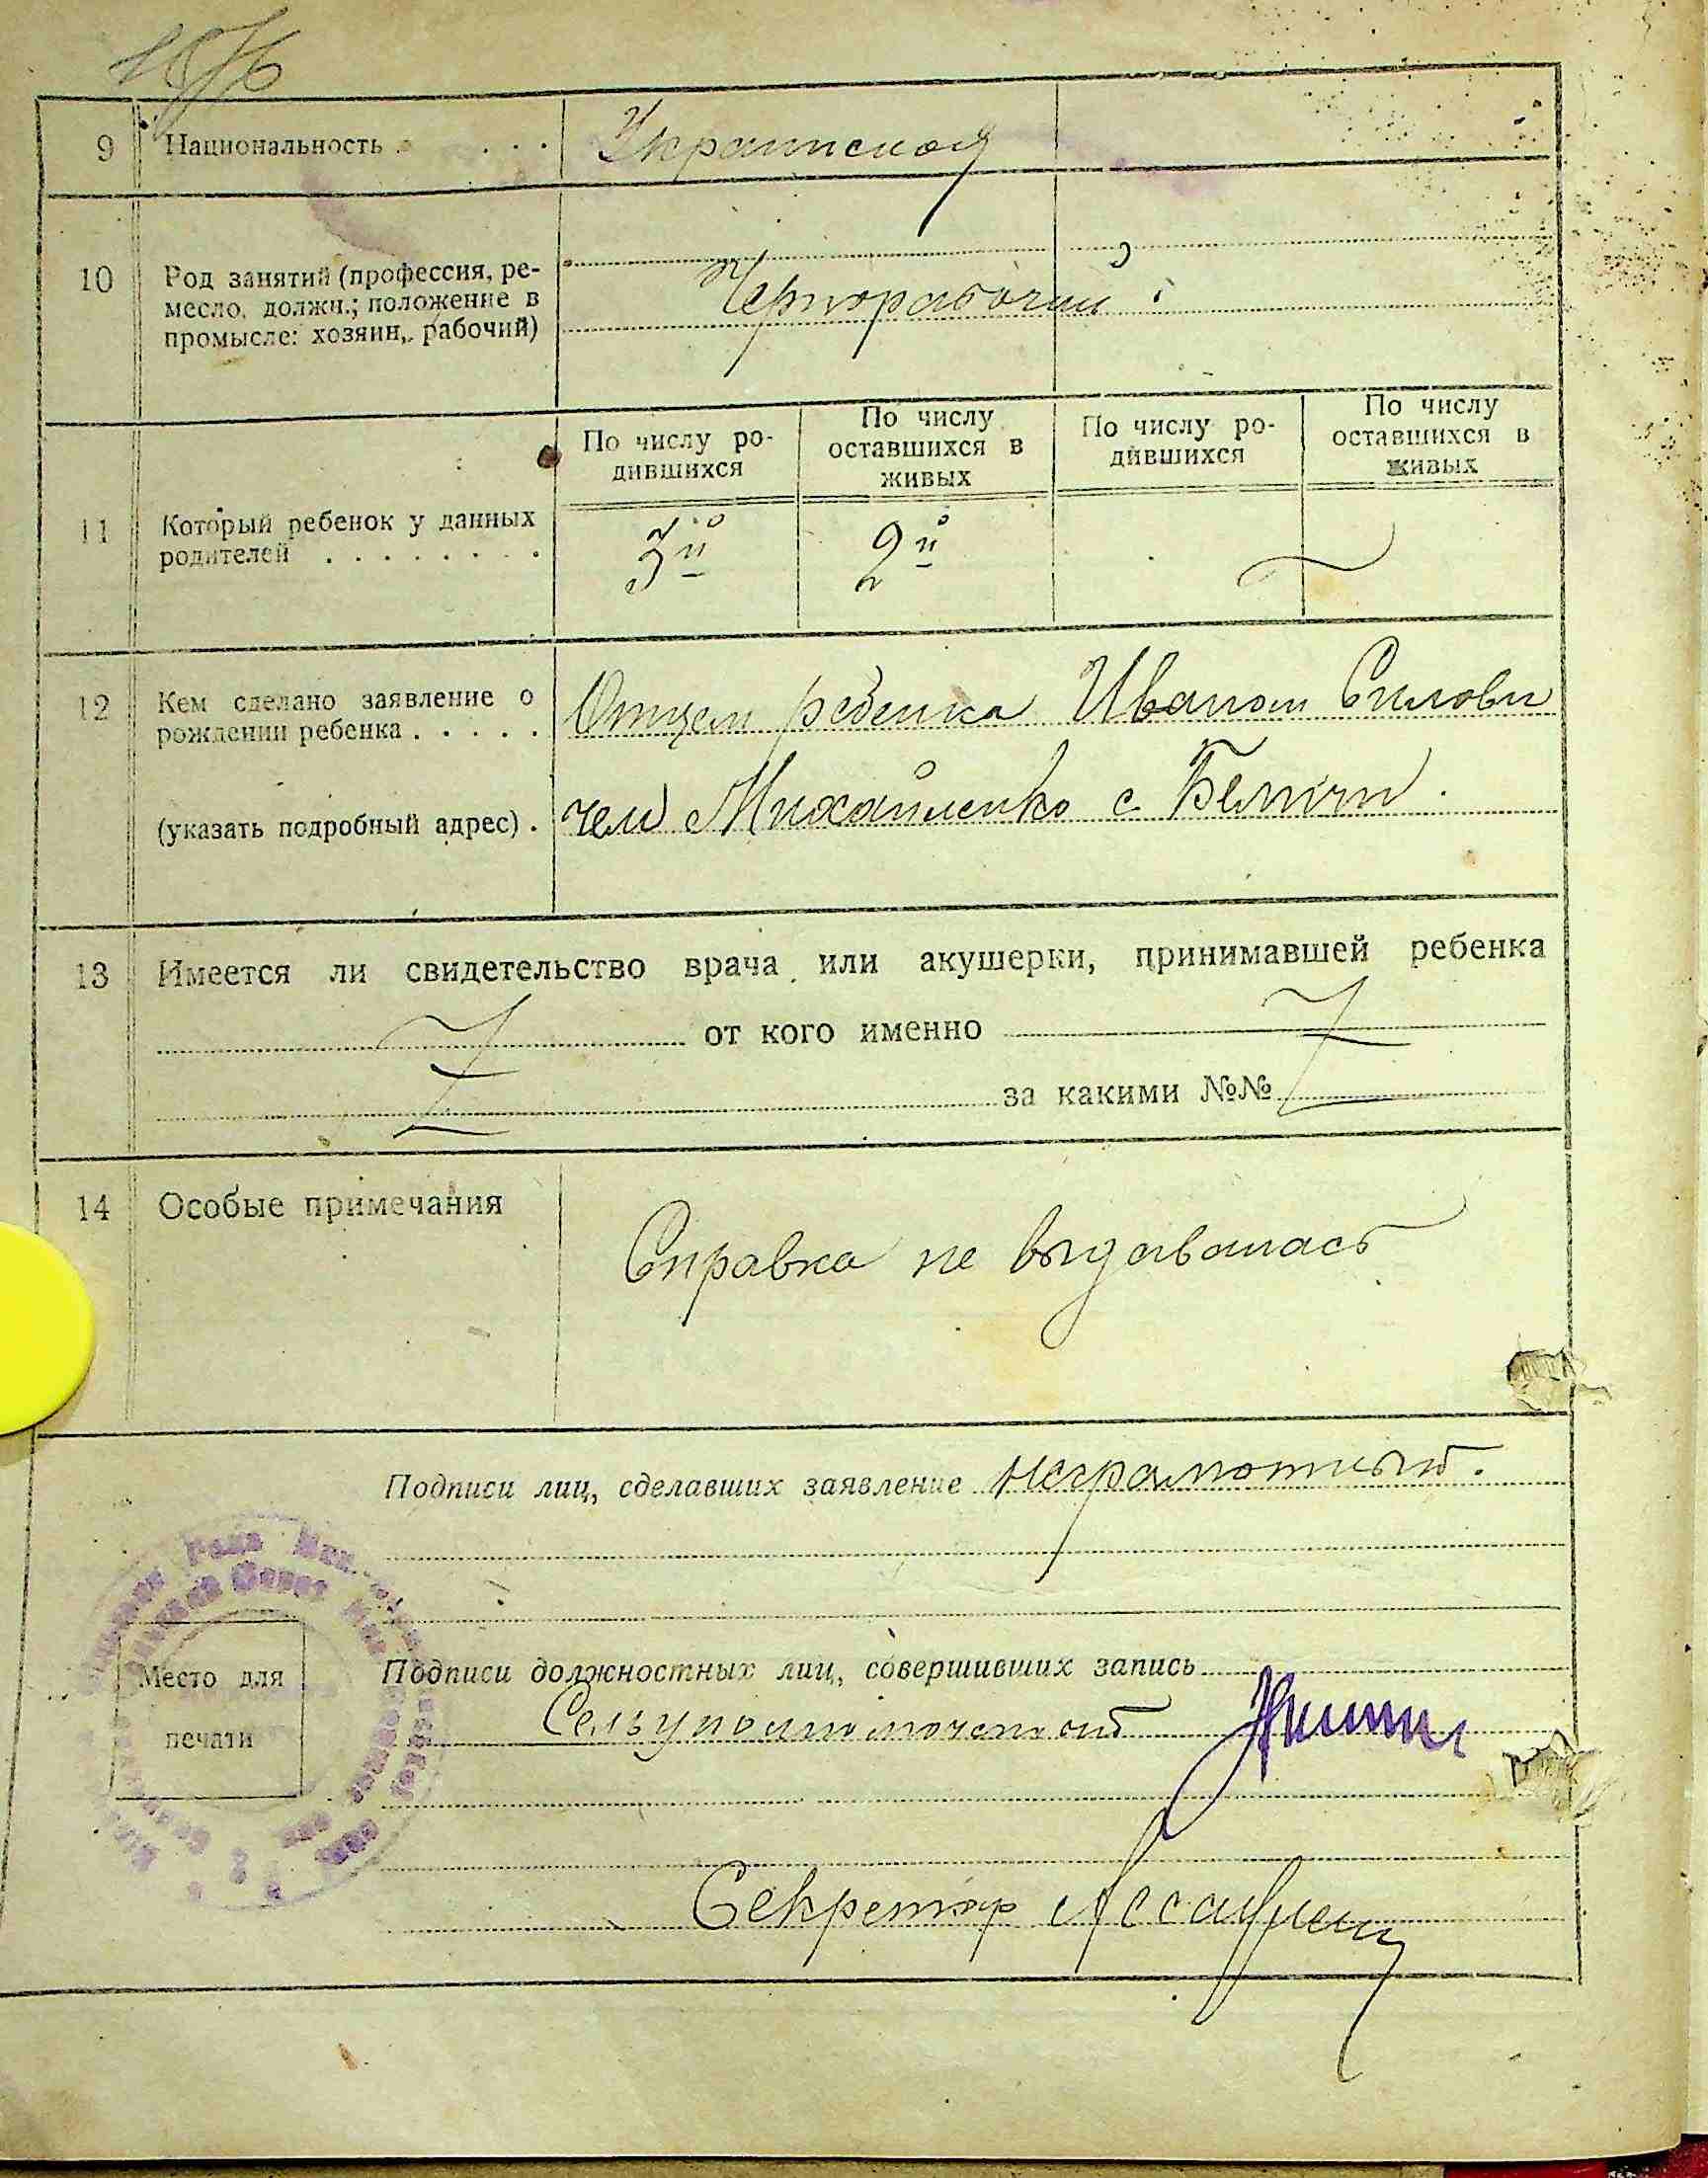 9 Национальность . . . . Украинской
10 Род занятий (профессия, ре-
месло, должн.; положение в
промысле: хозяин, рабочий)
Чернорабочий
По числу ро-
дившихся
По числу
оставшихся в
живых
По числу ро-
дившихся
По числу
оставшихся в
живых
11 Который ребенок у данных
родителей . . . . . . . .
3й 2й
12 Кем сделано заявление о
рождении ребенка . . . . .
(указать подробный адрес) .
Отцем ребенка Иваном Силови
чем Михайленко с. Беличи.
13 Имеется ли свидетельство врача или акушерки, принимавшей ребенка
от кого именно
за какими №№
14 Особые примечания
Справка не выдавалась
Подписи лиц, сделавших заявление неграмотный.
Подписи должностных лиц, совершивших запись
Место для
печати
Сельуполномоченный
Секретарь